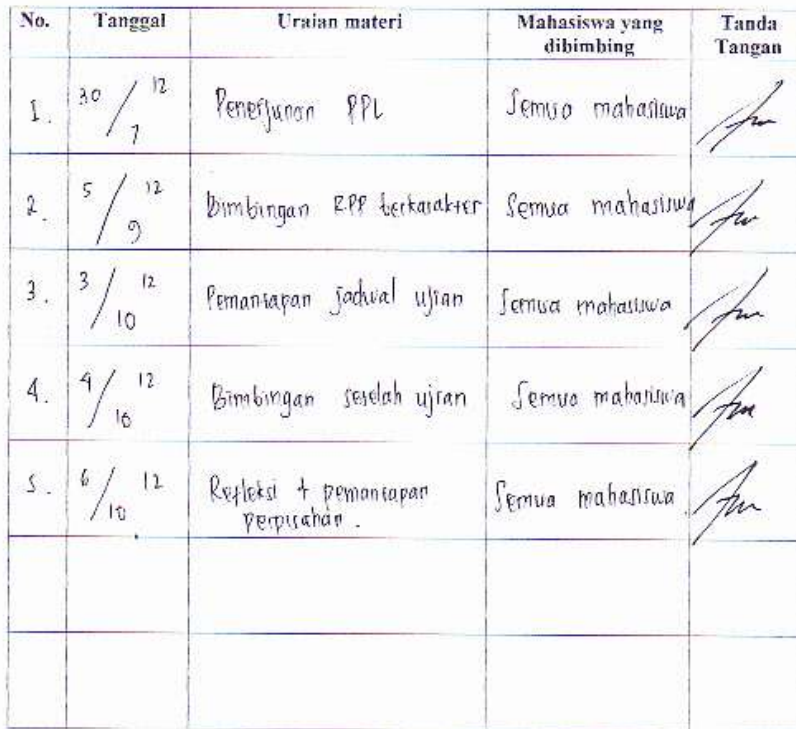 No. Tanggal Uraian materi Mahasiswa yang dibimbing Tanda Tangan
1. 30/7 12 Penerjunan PPL Semua mahasiswa
2. 5/9 12 Bimbingan RPP berkarakter Semua mahasiswa
3. 3/10 12 Pemantapan jadwal ujian Semua mahasiswa
4. 4/10 12 Bimbingan setelah ujian Semua mahasiswa
5. 6/10 12 Refleksi + pemantapan Semua mahasiswa.
perpisahan.